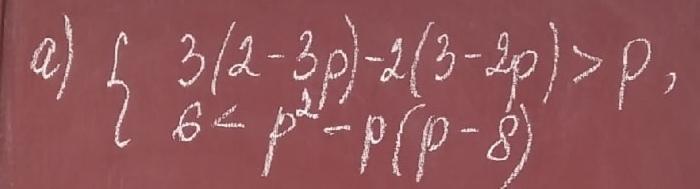 a) { 3(2-3p)-2(3-2p)>p,
6<p²-p(p-8)